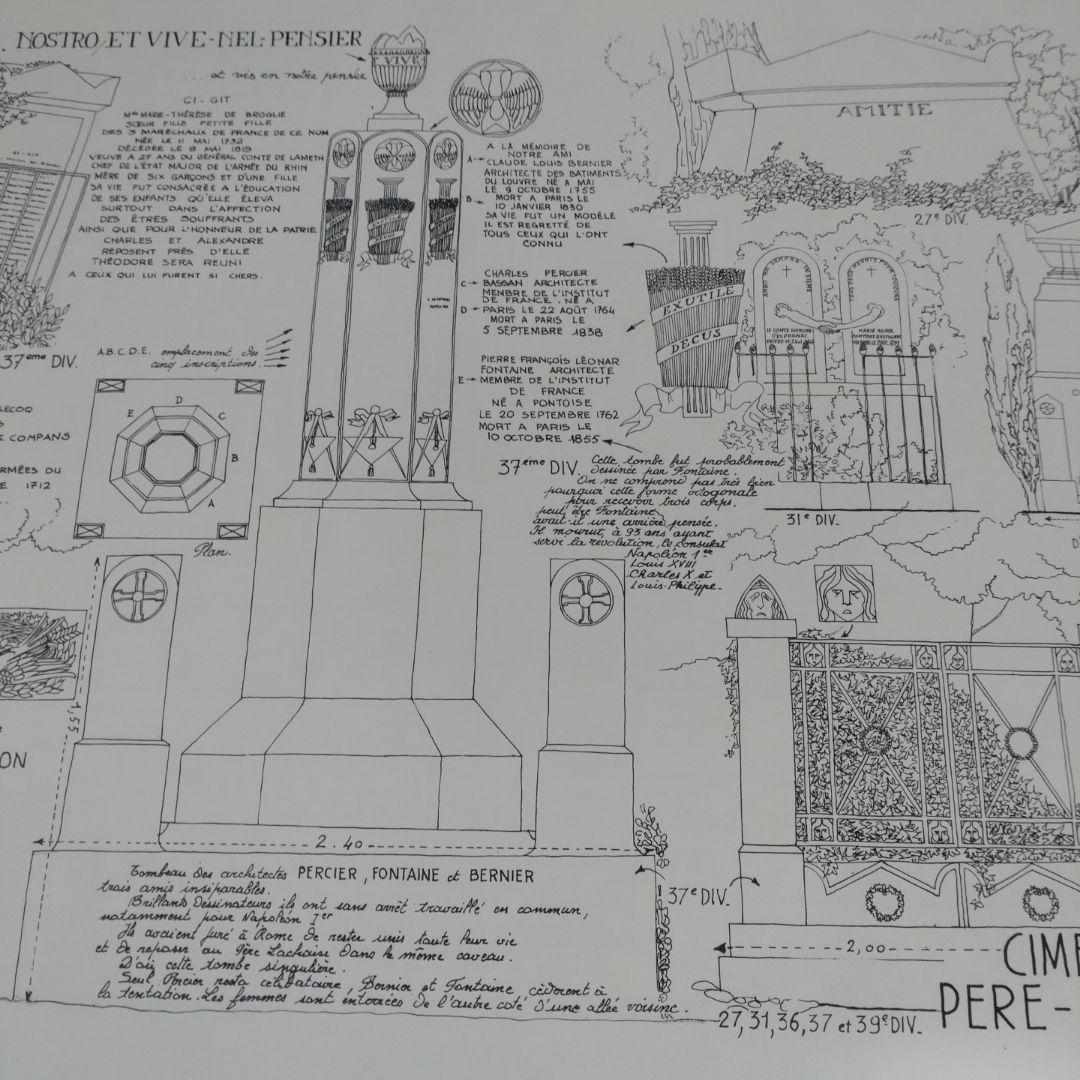 NOSTRO ET VIVE-NEL-PENSIER
... et vis en notre pensée
ET VIVE
CI-GIT
Mme MARIE-THÉRÈSE DE BROGLIE
SŒUR FILLE PETITE FILLE
DES 3 MARÉCHAUX DE FRANCE DE CE NOM
NÉE LE 11 MAI 1732
DÉCÉDÉE LE 9 MAI 1819
VEUVE A 27 ANS DU GÉNÉRAL COMTE DE LAMETH
CHEF DE L'ÉTAT MAJOR DE L'ARMÉE DU RHIN
MÈRE DE SIX GARÇONS ET D'UNE FILLE
SA VIE FUT CONSACRÉE A L'ÉDUCATION
DE SES ENFANTS QU'ELLE ÉLEVA
SURTOUT DANS L'AFFECTION
DES ÊTRES SOUFFRANTS
AINSI QUE POUR L'HONNEUR DE LA PATRIE
CHARLES ET ALEXANDRE
REPOSENT PRÈS D'ELLE
THÉODORE SERA REUNI
A CEUX QUI LUI FURENT SI CHERS.
37eme DIV.
A.B.C.D.E. emplacement des
cinq inscriptions.
E D C
B
A
Plan.
LECOQ
COMPANS
ARMÉES DU
1712
ON
1,55
A LA MÉMOIRE DE
NOTRE AMI
A CLAUDE LOUIS BERNIER
ARCHITECTE DES BATIMENTS
DU LOUVRE NÉ A MAI
LE 9 OCTOBRE 1755
B MORT A PARIS LE
10 JANVIER 1830
SA VIE FUT UN MODÈLE
IL EST REGRETTÉ DE
TOUS CEUX QUI L'ONT
CONNU
CHARLES PERCIER
C BASSAN ARCHITECTE
MEMBRE DE L'INSTITUT
DE FRANCE. NÉ A
D PARIS LE 22 AOÛT 1764
MORT A PARIS LE
5 SEPTEMBRE 1838
PIERRE FRANÇOIS LÉONAR
FONTAINE ARCHITECTE
E MEMBRE DE L'INSTITUT
DE FRANCE
NÉ A PONTOISE
LE 20 SEPTEMBRE 1762
MORT A PARIS LE
10 OCTOBRE 1855
EXUTILE
DECUS
37eme DIV. Cette tombe fut probablement
dessinée par Fontaine.
On ne comprend pas très bien
pourquoi cette forme octogonale
pour recevoir trois corps.
peut être Fontaine
avait-il une arrière pensée.
Il mourut, à 93 ans ayant
servi la révolution, le consulat
Napoléon 1er
Louis XVIII
Charles X et
Louis-Philippe.
AMITIE
27e DIV.
LE COMTE HONORÉ
D'ESPAGNAC
31e DIV.
2.40
Tombeau des architectes PERCIER, FONTAINE et BERNIER
trois amis inséparables.
Brillants Dessinateurs ils ont sans arrêt travaillé en commun,
notamment pour Napoléon Ier
Ils avaient juré à Rome de rester unis toute leur vie
et de reposer au Père Lachaise dans le même caveau.
D'où cette tombe singulière.
Seul Percier resta célibataire, Bernier et Fontaine cédèrent à
la tentation. Les femmes sont enterrées de l'autre coté d'une allée voisine.
37e DIV.
2,00
CIME
PERE-
27, 31, 36, 37 et 39e DIV.